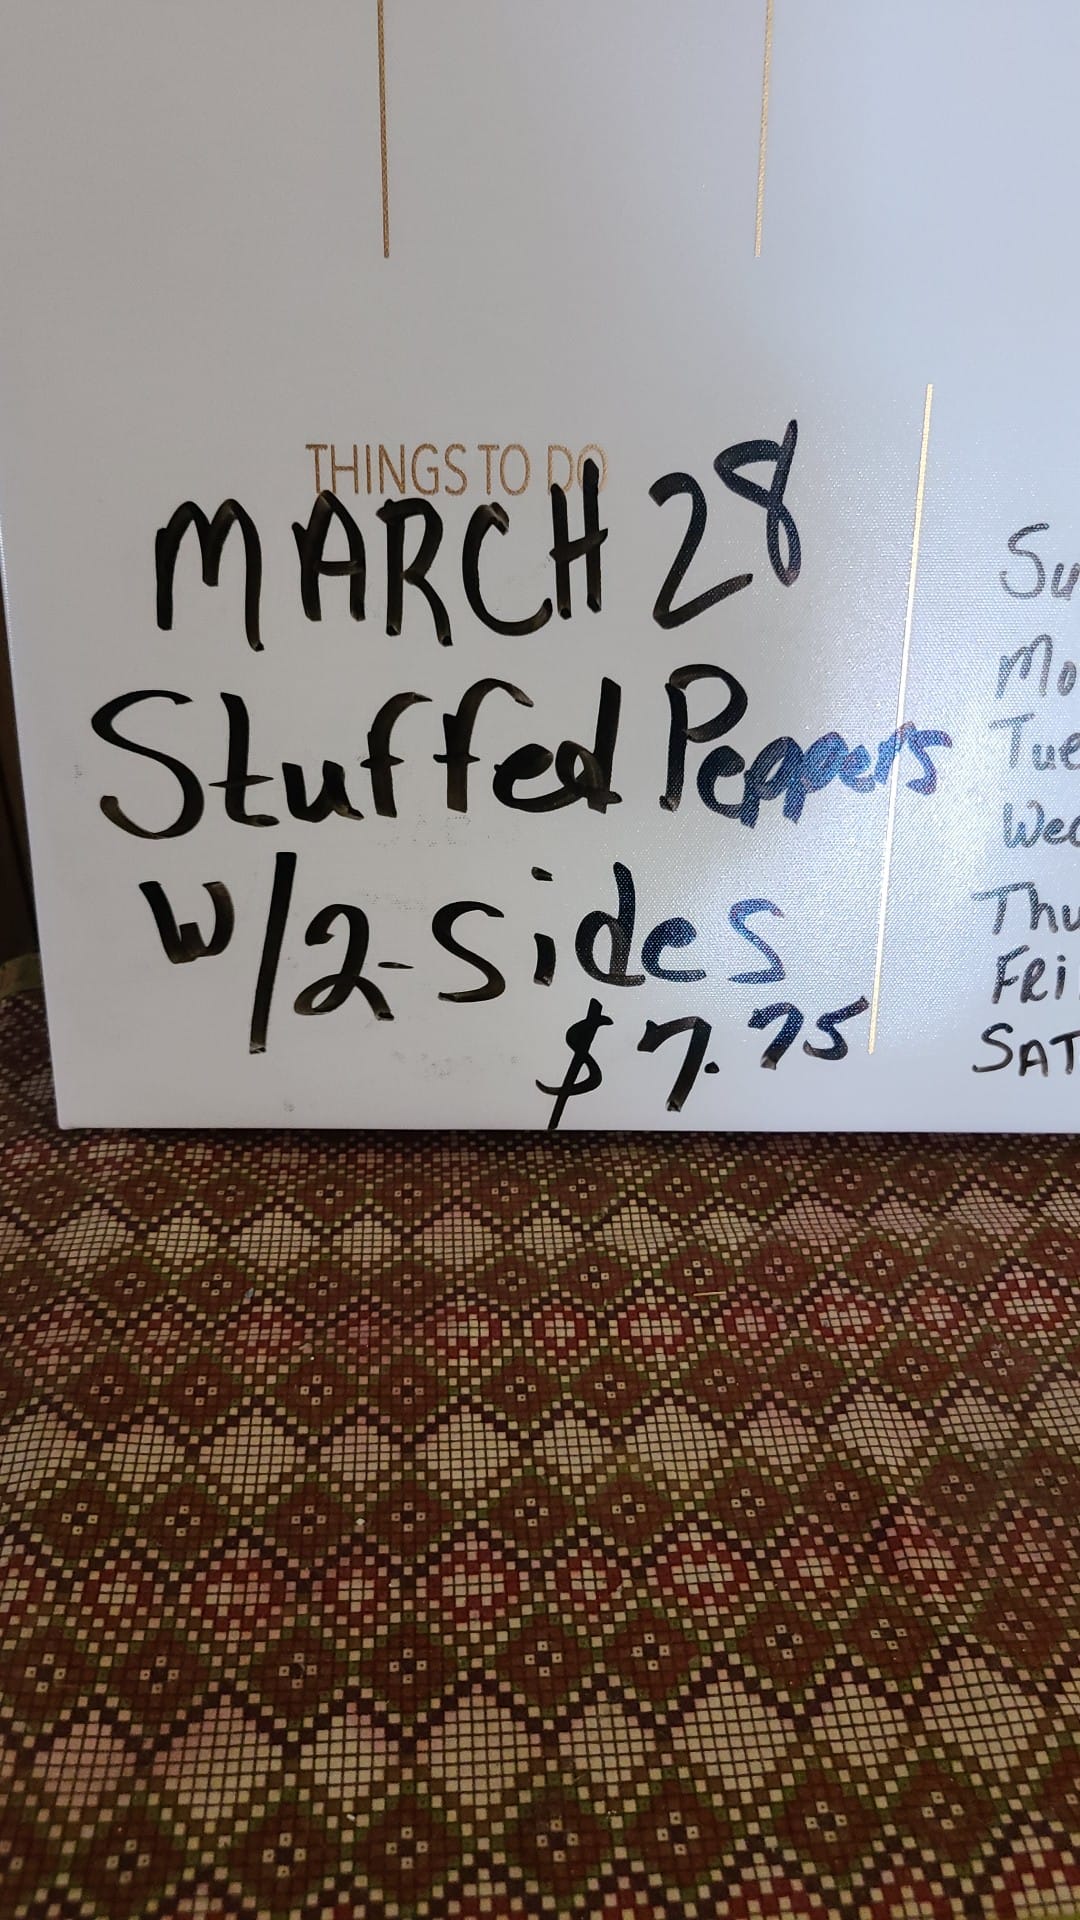 THINGS TO DO
MARCH 28
Stuffed Peppers
W/2-Sides
$7.75
Su
Mo
Tue
Wed
Thu
FRi
SAT